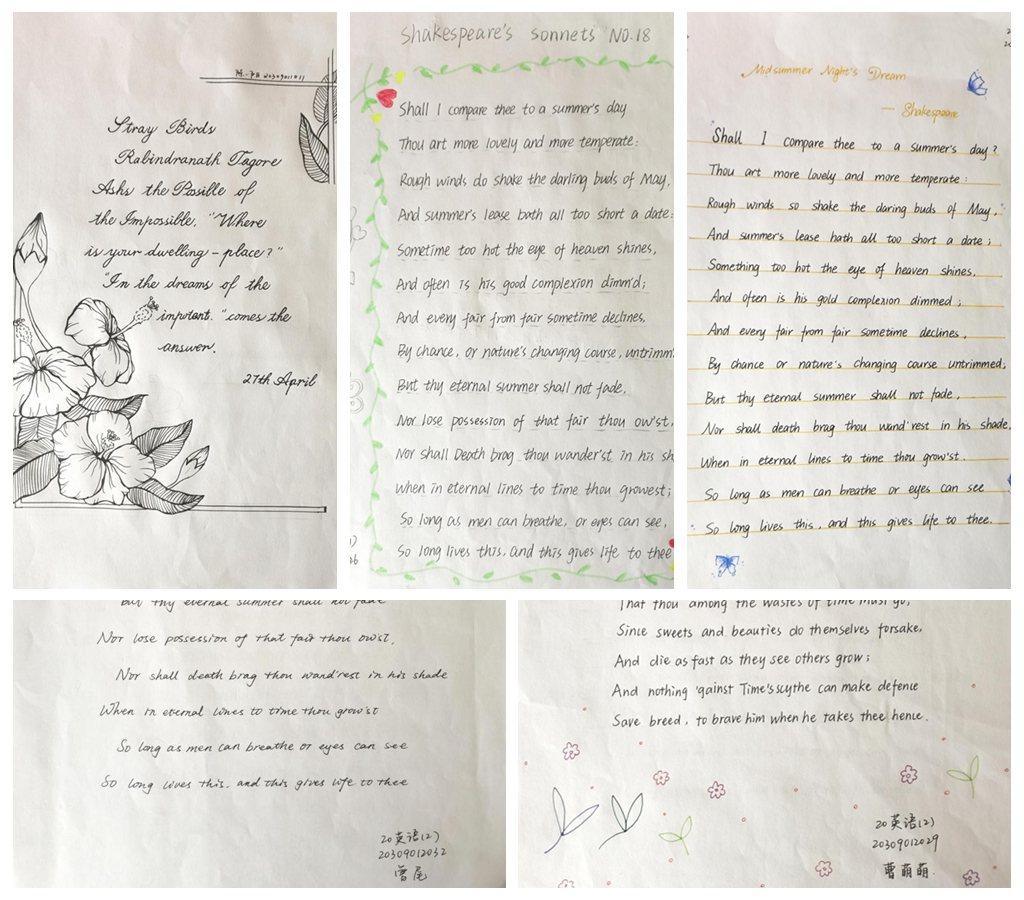 Stray Birds
Rabindranath Tagore
Asks the Possille of
the Impossible. "Where
is your dwelling - place?"
"In the dreams of the
impotent. "comes the
answer.
27th April
Shakespeare's sonnets No.18
Shall I compare thee to a summer's day
Thou art more lovely and more temperate:
Rough winds do shake the darling buds of May.
And summer's lease bath all too short a date:
Sometime too hot the eye of heaven shines,
And often is his good complexion dimm'd;
And every fair from fair sometime declines,
By chance, or nature's changing course, untrimm
But thy eternal summer shall not fade,
Nor lose possession of that fair thou ow'st,
Nor shall Death brag thou wander'st in his sh
When in eternal lines to time thou growest;
So long as men can breathe, or eyes can see,
So long lives this, and this gives life to thee
Midsummer Night's Dream
— Shakespeare
Shall I compare thee to a summer's day?
Thou art more lovely and more temperate:
Rough winds so shake the daring buds of May,
And summer's lease hath all too short a date;
Something too hot the eye of heaven shines,
And often is his gold complexion dimmed;
And every fair from fair sometime declines,
By chance or nature's changing caurse untrimmed;
But thy eternal summer shall not fade,
Nor shall death brag thou wand'rest in his shade,
When in eternal lines to time thou grow'st.
So long as men can breathe or eyes can see
So long lives this, and this gives life to thee.
But thy eternal summer shall not fade
Nor lose possession of that fair thou ow'st,
Nor shall death brag thou wand'rest in his shade
When in eternal lines to time thou grow'st
So long as men can breathe or eyes can see
So long lives this, and this gives life to thee
20英语(2)
20309012032
曾尾
That thou among the wastes of time must go,
Since sweets and beauties do themselves forsake,
And die as fast as they see others grow;
And nothing 'gainst Time's scythe can make defence
Save breed, to brave him when he takes thee hence.
20英语(2)
20309012029
曹萌萌